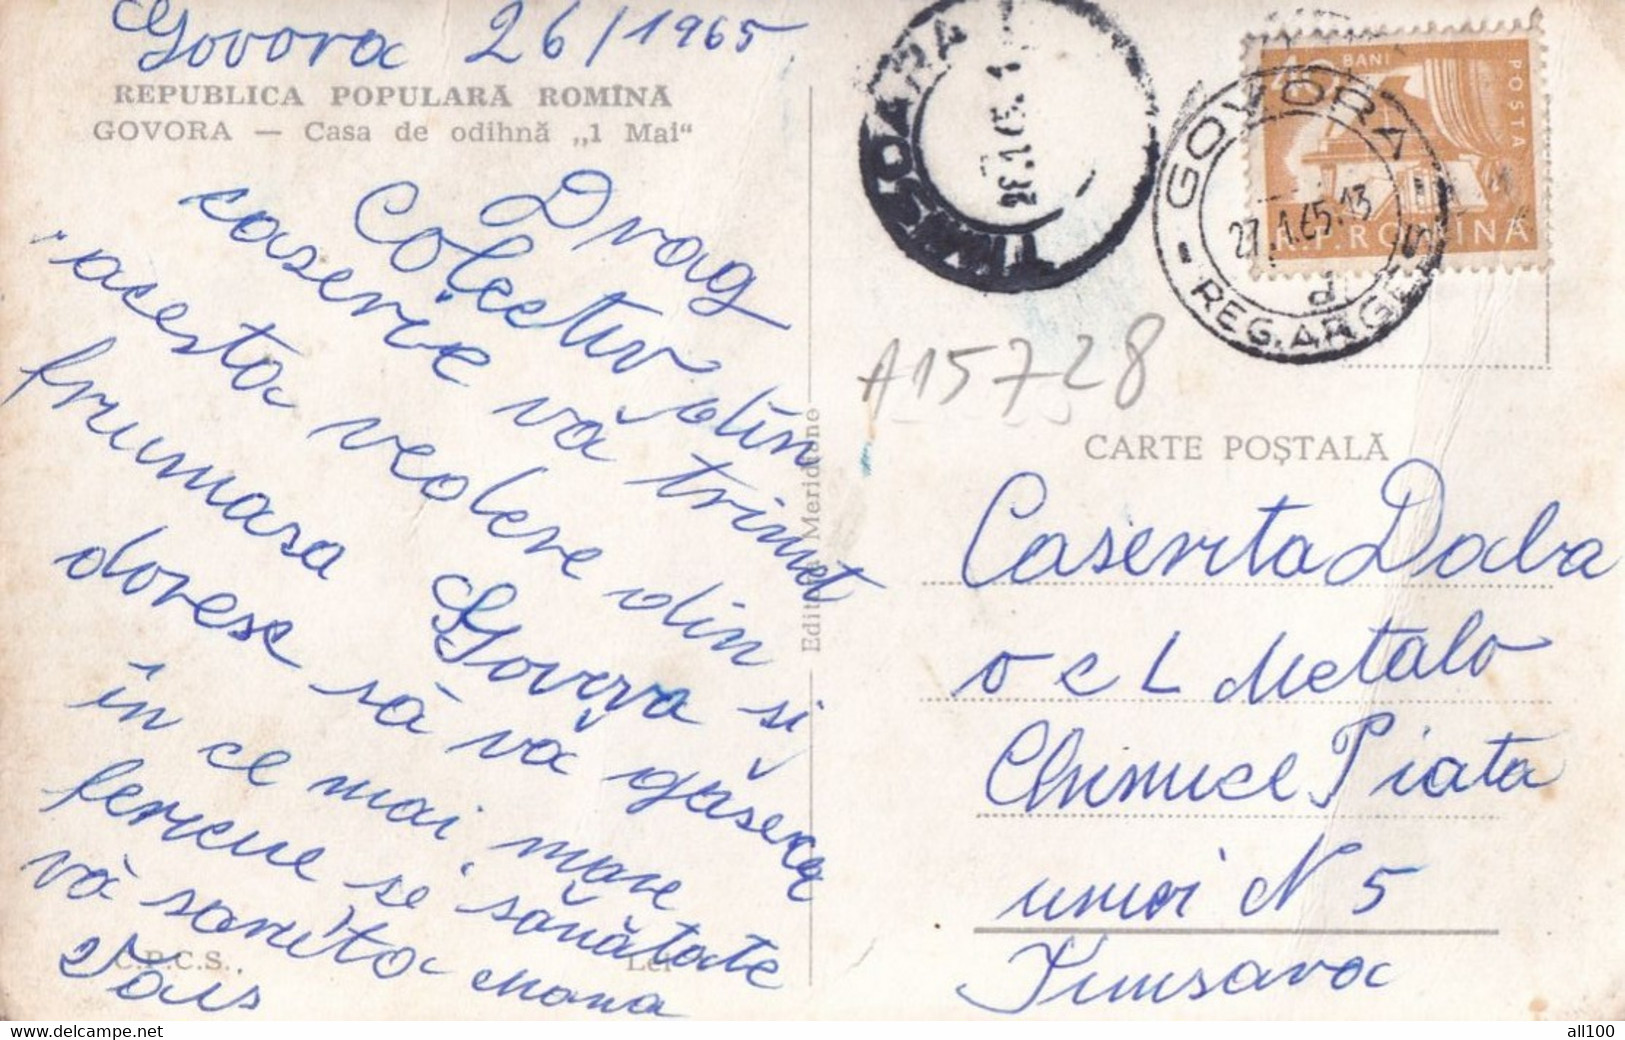 Govora 26/1965
REPUBLICA POPULARĂ ROMÎNĂ
GOVORA — Casa de odihnă „1 Mai“
Drag
Colectiv din
caserie vă trimet
acesta vedere din
frumasa Govora si
doresc să vă găsesca
în ce mai mare
fericire si sănătate
vă saruta mana
C.P.C.S. Lei
Editura Meridiane
TIMIȘOARA
28.1.65
GOVORA
27.1.65.13
REG. ARGEȘ
40 BANI
POSTA
R.P.ROMINA
A15728
CARTE POȘTALĂ
Caserita Daba
o c L Metalo
Chimice Piata
unirei N 5
Timisoara
www.delcampe.net
all100